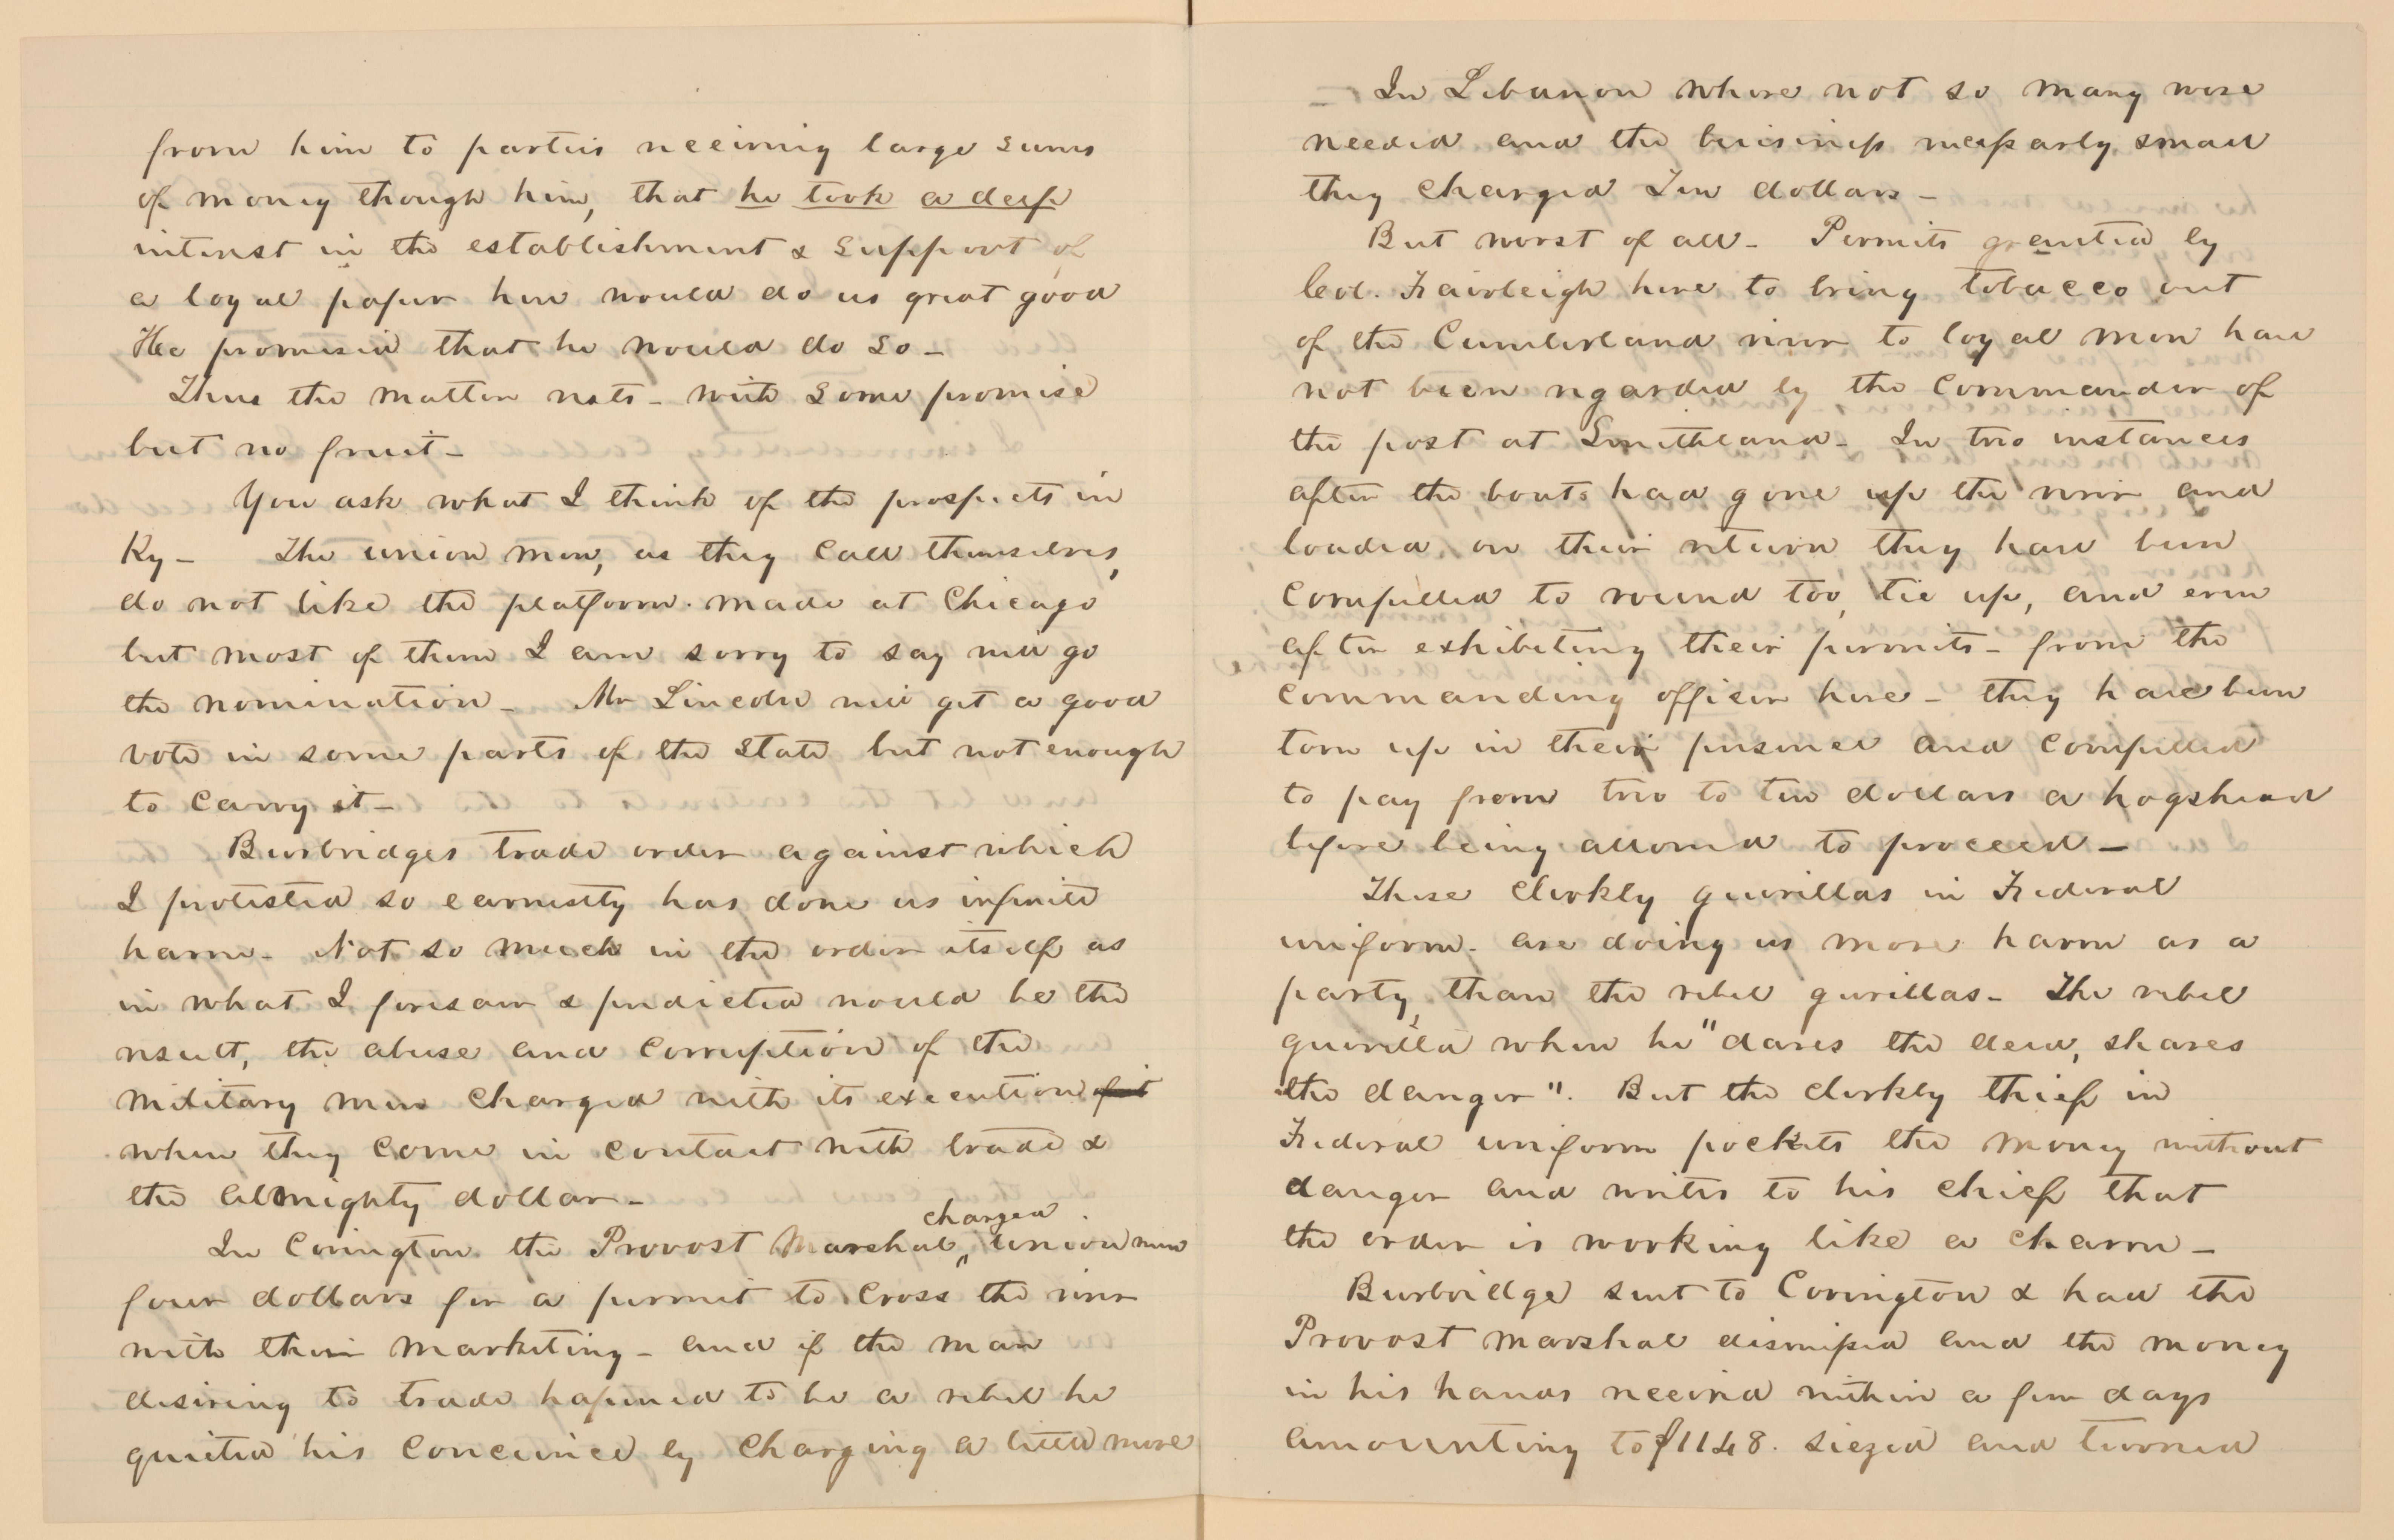 from him to parties receiving large sums
of money though him, that he took a deep
interest in the establishment & support of
a loyal paper here would do us great good
He promised that he would do so -
Thus the matter rests - with some promise
but no fruit -
You ask what I think of the prospects in
Ky - The union men, as they call themselves,
do not like the platform made at Chicago
but most of them I am sorry to say will go
the nomination - Mr Lincoln will get a good
vote in some parts of the State but not enough
to carry it -
Burbridges trade order against which
I protested so earnestly has done us infinite
harm - Not so much in the order itself as
in what I foresaw & predicted would be the
result, the abuse and corruption of the
military men charged with its execution
when they come in contact with trade &
the almighty dollar -
In Covington the Provost Marshal charged union men
four dollars for a permit to cross the river
with their marketing - and if the man
desiring to trade hapened to be a rebel he
quieted his concience by charging a little more
- In Lebanon where not so many were
needed and the buisiness necessarly small
they charged Ten dollars -
But worst of all - Permits granted by
Col. Fairleigh here to bring tobacco out
of the Cumberland river to loyal men have
not been regarded by the commander of
the post at Smithland - In two instances
after the boats had gone up the river and
loaded, on their return they have been
compelled to round too, tie up, and even
after exhibiting their permits - from the
commanding officer here - they have been
torn up in their presence and compelled
to pay from two to ten dollars a hogshead
before being allowed to proceed -
These clerkly guerillas in Federal
uniform - are doing us more harm as a
party, than the rebel gurillas - The rebel
guerilla when he "dares the deed, shares
the danger". But the clerkly thief in
Federal uniform pockets the money without
danger and writes to his chief that
the order is working like a charm -
Burbridge sent to Covington & had the
Provost Marshal dismissed and the money
in his hands received within a few days
amounting to $1148. siezed and turned